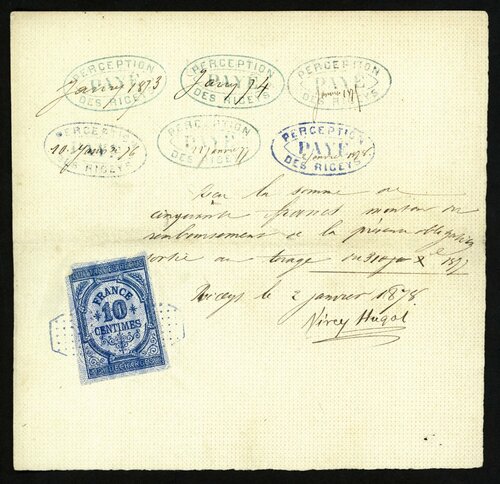 PERCEPTION
PAYÉ
DES RICEYS
Janv 1873
PERCEPTION
PAYÉ
DES RICEYS
Janv 74
PERCEPTION
PAYÉ
DES RICEYS
PERCEPTION
DES RICEYS
10 Janv 76
PERCEPTION
PAYÉ
DES RICEYS
PERCEPTION
PAYÉ
DES RICEYS
Reçu la somme de
cinquante francs montant du
remboursement de la présente obligation
sortie au tirage 1877
Riceys le 2 janvier 1878
Hugot
FRANCE
10
CENTIMES